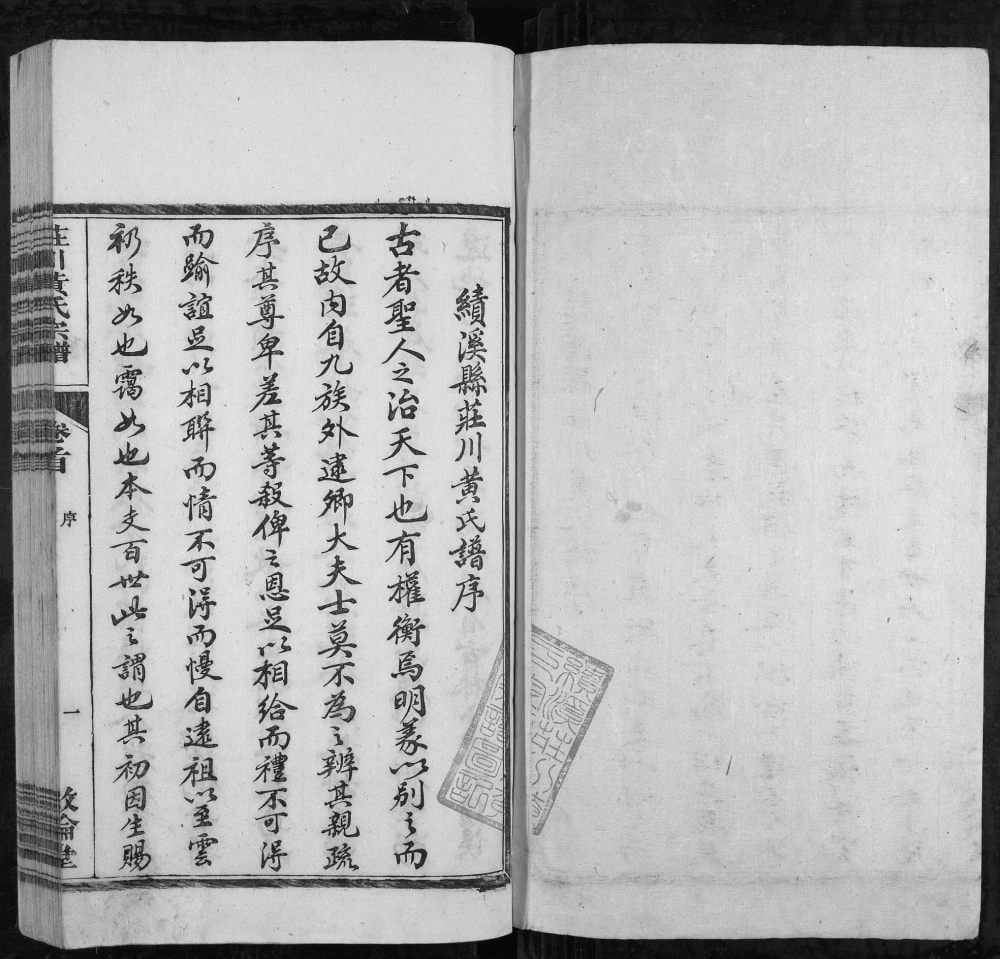 績溪縣莊川黃氏譜序
古者聖人之治天下也有權衡焉明義以別之而
已故内自九族外逮卿大夫士莫不為之辨其親疏
序其尊卑差其等殺俾之恩足以相給而禮不可得
而踰誼足以相聯而情不可得而慢自逮祖以至雲
礽秩如也靄如也本支百世此之謂也其初因生賜
莊川黃氏宗譜
卷首
序
一
敘倫堂